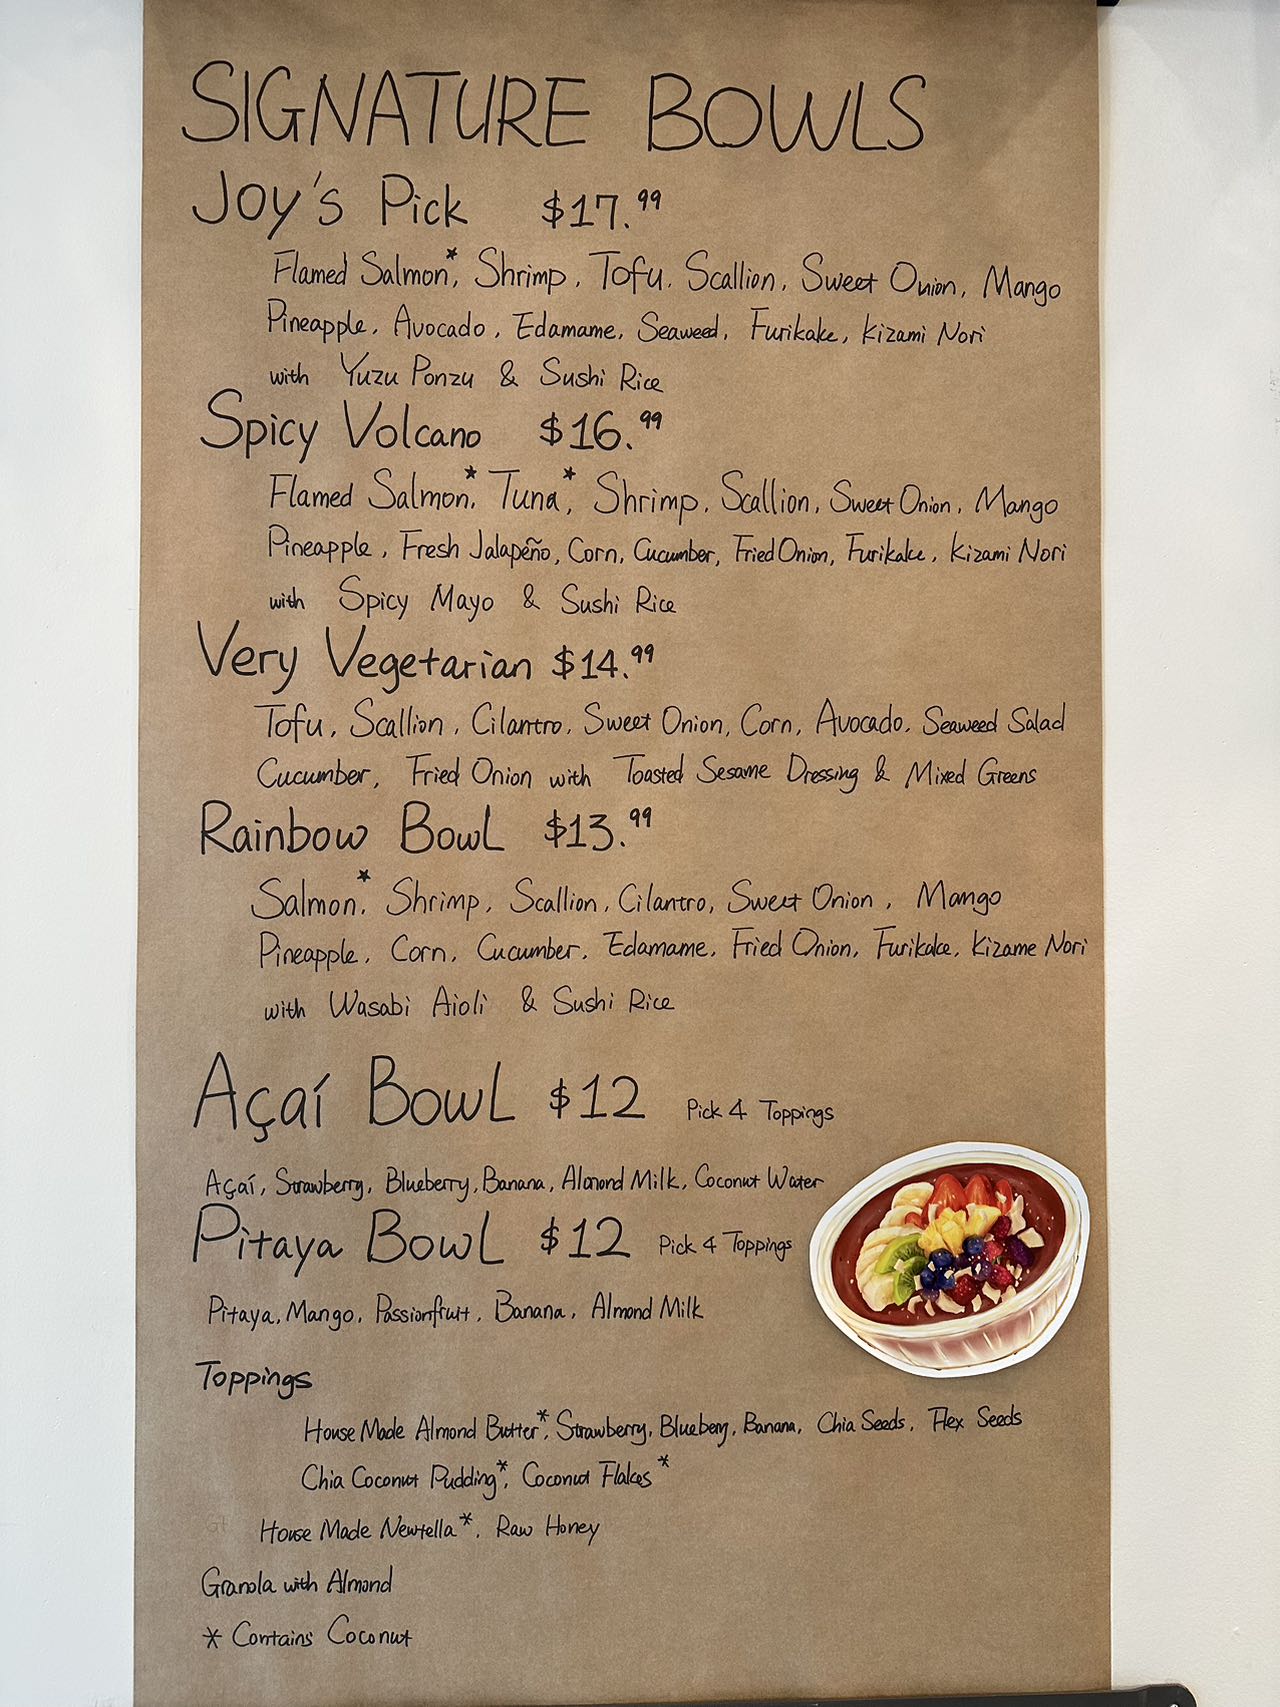 SIGNATURE BOWLS
Joy's Pick $17.99
Flamed Salmon*, Shrimp, Tofu, Scallion, Sweet Onion, Mango
Pineapple, Avocado, Edamame, Seaweed, Furikake, Kizami Nori
with Yuzu Ponzu & Sushi Rice
Spicy Volcano $16.99
Flamed Salmon*, Tuna*, Shrimp, Scallion, Sweet Onion, Mango
Pineapple, Fresh Jalapeño, Corn, Cucumber, Fried Onion, Furikake, Kizami Nori
with Spicy Mayo & Sushi Rice
Very Vegetarian $14.99
Tofu, Scallion, Cilantro, Sweet Onion, Corn, Avocado, Seaweed Salad
Cucumber, Fried Onion with Toasted Sesame Dressing & Mixed Greens
Rainbow Bowl $13.99
Salmon*, Shrimp, Scallion, Cilantro, Sweet Onion, Mango
Pineapple, Corn, Cucumber, Edamame, Fried Onion, Furikake, Kizame Nori
with Wasabi Aioli & Sushi Rice
Açaí Bowl $12 Pick 4 Toppings
Açaí, Strawberry, Blueberry, Banana, Almond Milk, Coconut Water
Pitaya Bowl $12 Pick 4 Toppings
Pitaya, Mango, Passionfruit, Banana, Almond Milk
Toppings
House Made Almond Butter*, Strawberry, Blueberry, Banana, Chia Seeds, Flex Seeds
Chia Coconut Pudding*, Coconut Flakes*
House Made Newtella*, Raw Honey
Granola with Almond
* Contains Coconut